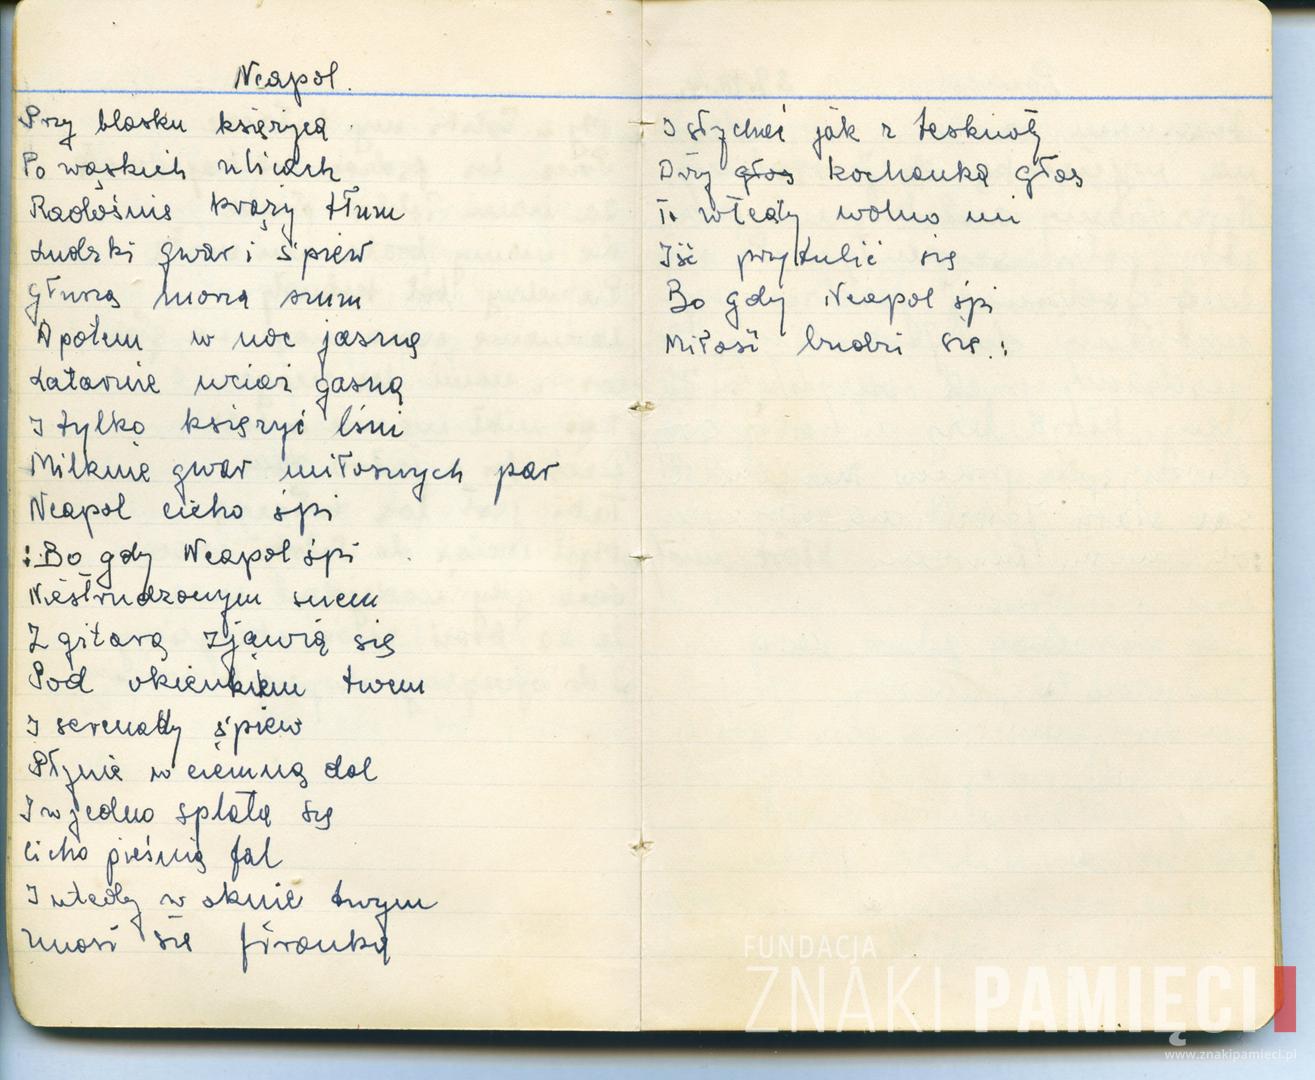 Neapol.
Przy blasku księżyca
Po wąskich ulicach
Radośnie krąży tłum
Ludzki gwar i śpiew
Głuszą morza szum
A potem w noc jasną
Latarnie wciąż gasną
I tylko księżyć lśni
Milknie gwar miłosnych par
Neapol cicho śpi
:Bo gdy Neapol śpi
Niestrudzonym snem
Z gitarą zjawią się
Pod okienkiem twem
I serenady śpiew
Płynie w ciemną dal
I w jedno splata się
Cicho pieśnią fal
I wtedy w oknie twym
Unosi się firanką
I słychać jak z tęsknoty
Drży głos kochanką głos
I wtedy wolno mi
Iść przytulić się
Bo gdy Neapol śpi
Miłość budzi się.:
FUNDACJA
ZNAKI PAMIĘCI
www.znakipamieci.pl